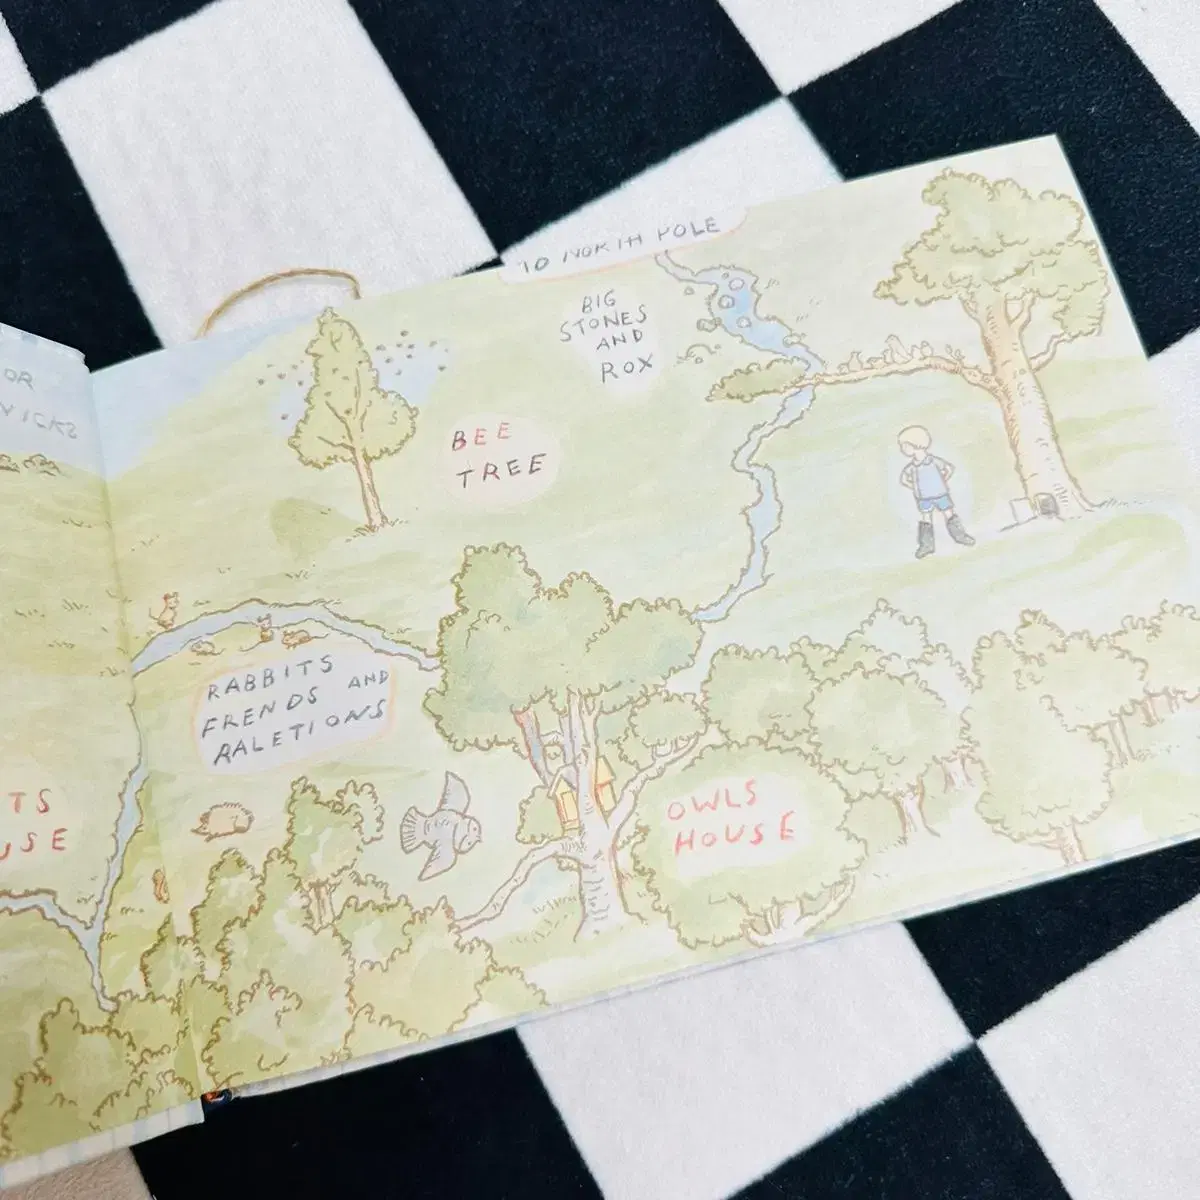 OR
NICKS
TO NORTH POLE
BIG
STONES
AND
ROX
BEE
TREE
RABBITS
FRENDS AND
RALETIONS
TS
USE
OWLS
HOUSE